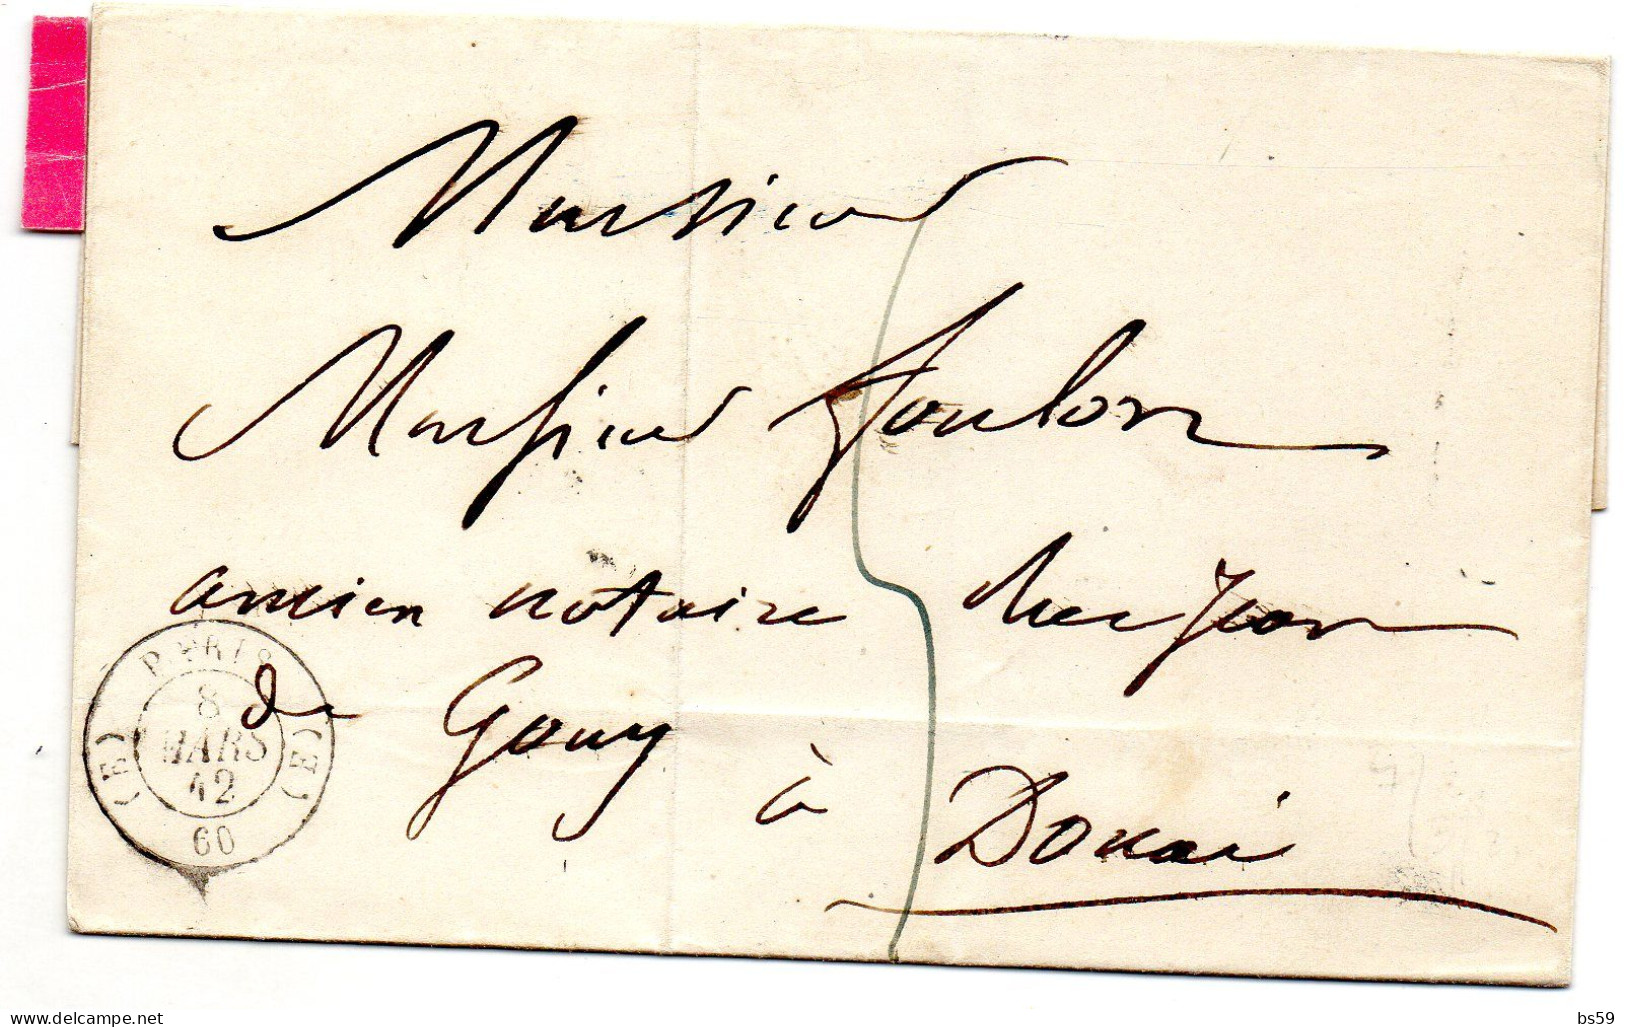 Monsieur
Monsieur Foulon
ancien notaire
de Gouy
à Douai
PARIS
8
MARS
42
(E) (E)
60
delcampe.net
bs59